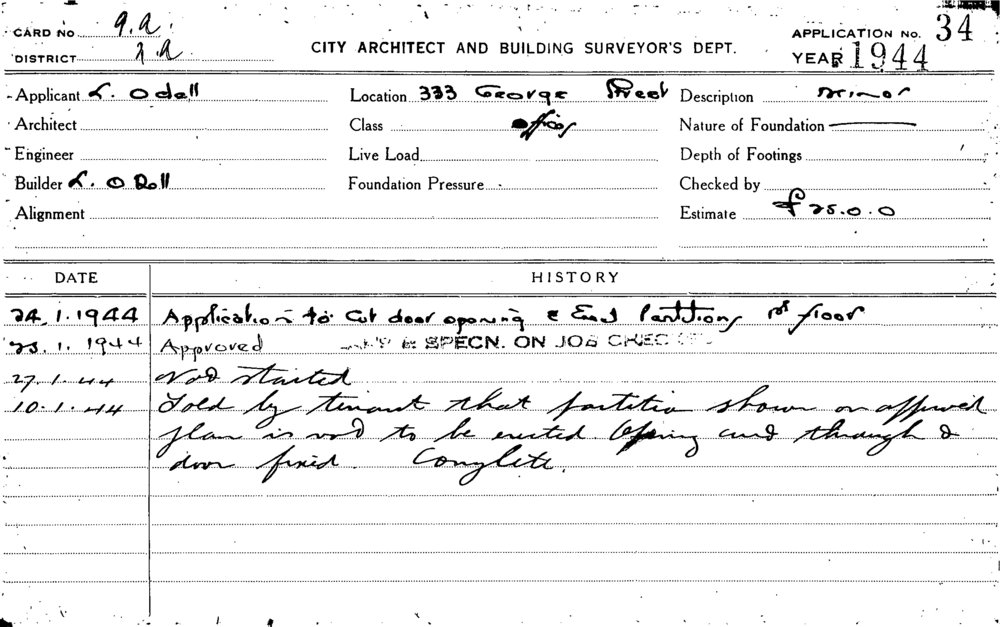 CARD No 9.a. CITY ARCHITECT AND BUILDING SURVEYOR'S DEPT. APPLICATION No. 34
DISTRICT YEAR 1944
Applicant L. Odell Location 333 George Street Description minor
Architect Class offices Nature of Foundation
Engineer Live Load Depth of Footings
Builder L. O Dell Foundation Pressure Checked by
Alignment Estimate £25.0.0
DATE HISTORY
24.1.1944 Application to Cut door opening & Erect Partitions 1st floor
25.1.1944 Approved & SPECN. ON JOB CHEC
27.1.44 Not started
10.1.44 Told by tenant that partition shown on approved
plan is not to be erected. Opening cut through &
door fixed. Complete.